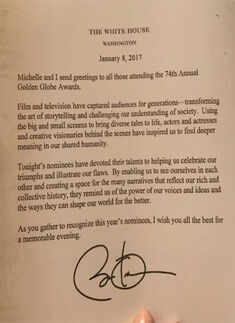 THE WHITE HOUSE
WASHINGTON
January 8, 2017
Michelle and I send greetings to all those attending the 74th Annual
Golden Globe Awards.
Film and television have captured audiences for generations—transforming
the art of storytelling and challenging our understanding of society. Using
the big and small screens to bring diverse tales to life, actors and actresses
and creative visionaries behind the scenes have inspired us to find deeper
meaning in our shared humanity.
Tonight's nominees have devoted their talents to helping us celebrate our
triumphs and illustrate our flaws. By enabling us to see ourselves in each
other and creating a space for the many narratives that reflect our rich and
collective history, they remind us of the power of our voices and ideas and
the ways they can shape our world for the better.
As you gather to recognize this year's nominees, I wish you all the best for
a memorable evening.